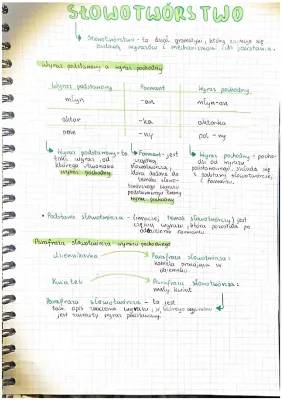 SŁOWOTWÓRSTWO
Słowotwórstwo - to dział gramatyki, który zajmuje się
budową wyrazów i mechanizmami ich powstania.
Wyraz podstawowy a wyraz pochodny
Wyraz podstawowy Formant Wyraz pochodny
młyn -arz młyn-arz
aktor -ka aktorka
pole -ny pol-ny
Wyraz podstawowy - to
taki wyraz, od
którego utworzono
wyraz pochodny
Formant - jest
cząstką
słowotwórczą,
która dodana do
tematu słowo-
twórczego wyrazu
podstawowego tworzy
wyraz pochodny
Wyraz pochodny - pocho-
dzi od wyrazu
podstawowego, składa się
z podstawy słowotwórczej
i formantu.
• Podstawa słowotwórcza - (inaczej temat słowotwórczy) jest
częścią wyrazu, która powstała po
oddzieleniu formantu.
Parafraza słowotwórcza wyrazu pochodnego
Uczennica
Parafraza słowotwórcza:
kobieta
Kwiatek
Parafraza słowotwórcza:
mały kwiat
Parafraza słowotwórcza - to jest
taki opis znaczenia wyrazu, w którego wyjaśnieniu
jest zawarty wyraz podstawowy.